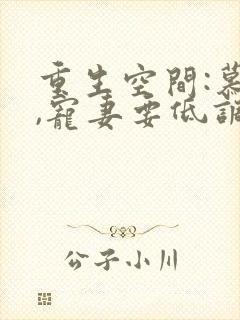 重生空間:慕
,寵妻要低調
公子小川